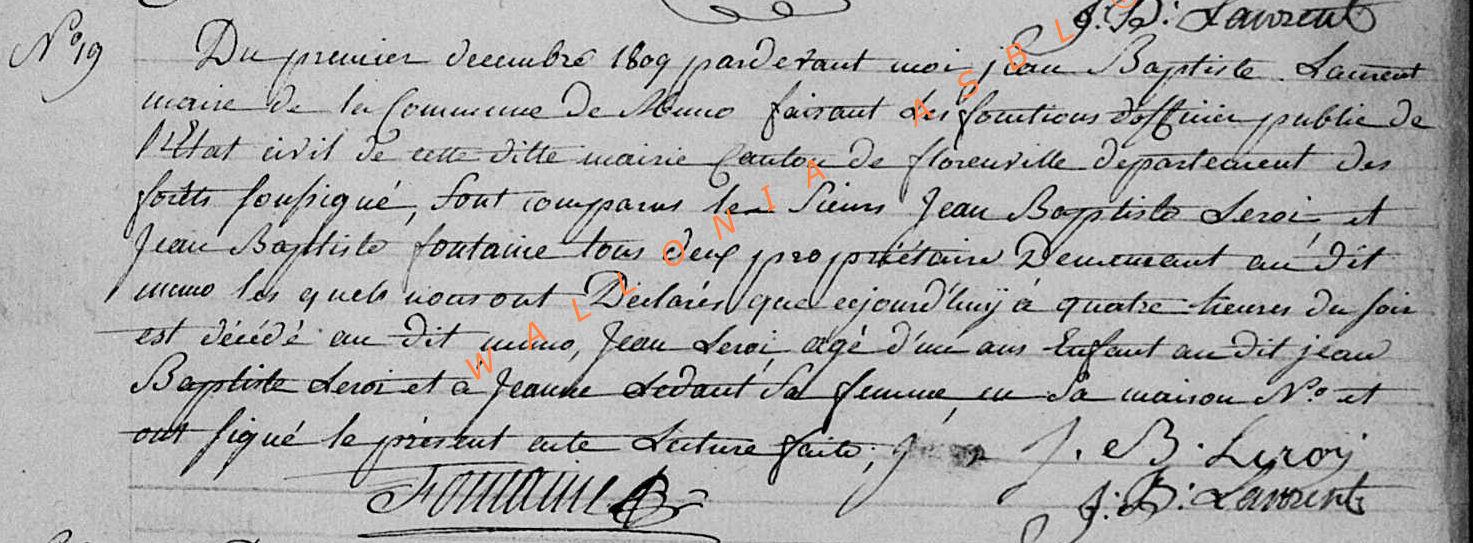 J: B: Laurent
N.º 19
Du premier decembre 1809 pardevant moi jean Baptiste Laurent
maire de la Commune de Muno faisant les fonctions d'officier public de
l'Etat civil de cette ditte mairie Canton de florenville departement des
forêts soussigné, sont comparus les Sieurs Jean Baptiste Leroi et
Jean Baptiste fontaine tous deux propriétaire Demeurant au dit
muno les quels nous ont Déclarés que cejourd'huÿ à quatre heures du soir
est décédé au dit muno, Jean Leroi agé d'un ans Enfant au dit jean
Baptiste Leroi et à Jeanne Ledant Sa femme, en Sa maison N.º et
ont signé le présent acte Lecture faite; J. B. Leroÿ
Fontaine
J: B: Laurent
WALLONIA ASBL